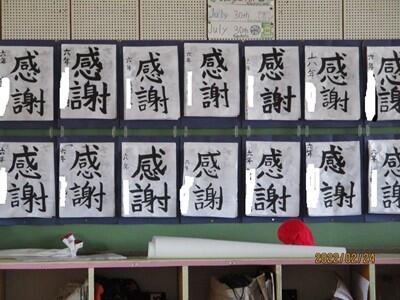 July 30th
July 30th
感謝 六年
感謝 六年
感謝 六年
感謝 六年
感謝 六年
感謝 六年
感謝 六年
感謝 六年
感謝 六年
感謝 六年
感謝 六年
感謝 六年
感謝 六年
感謝 六年
2022/02/24